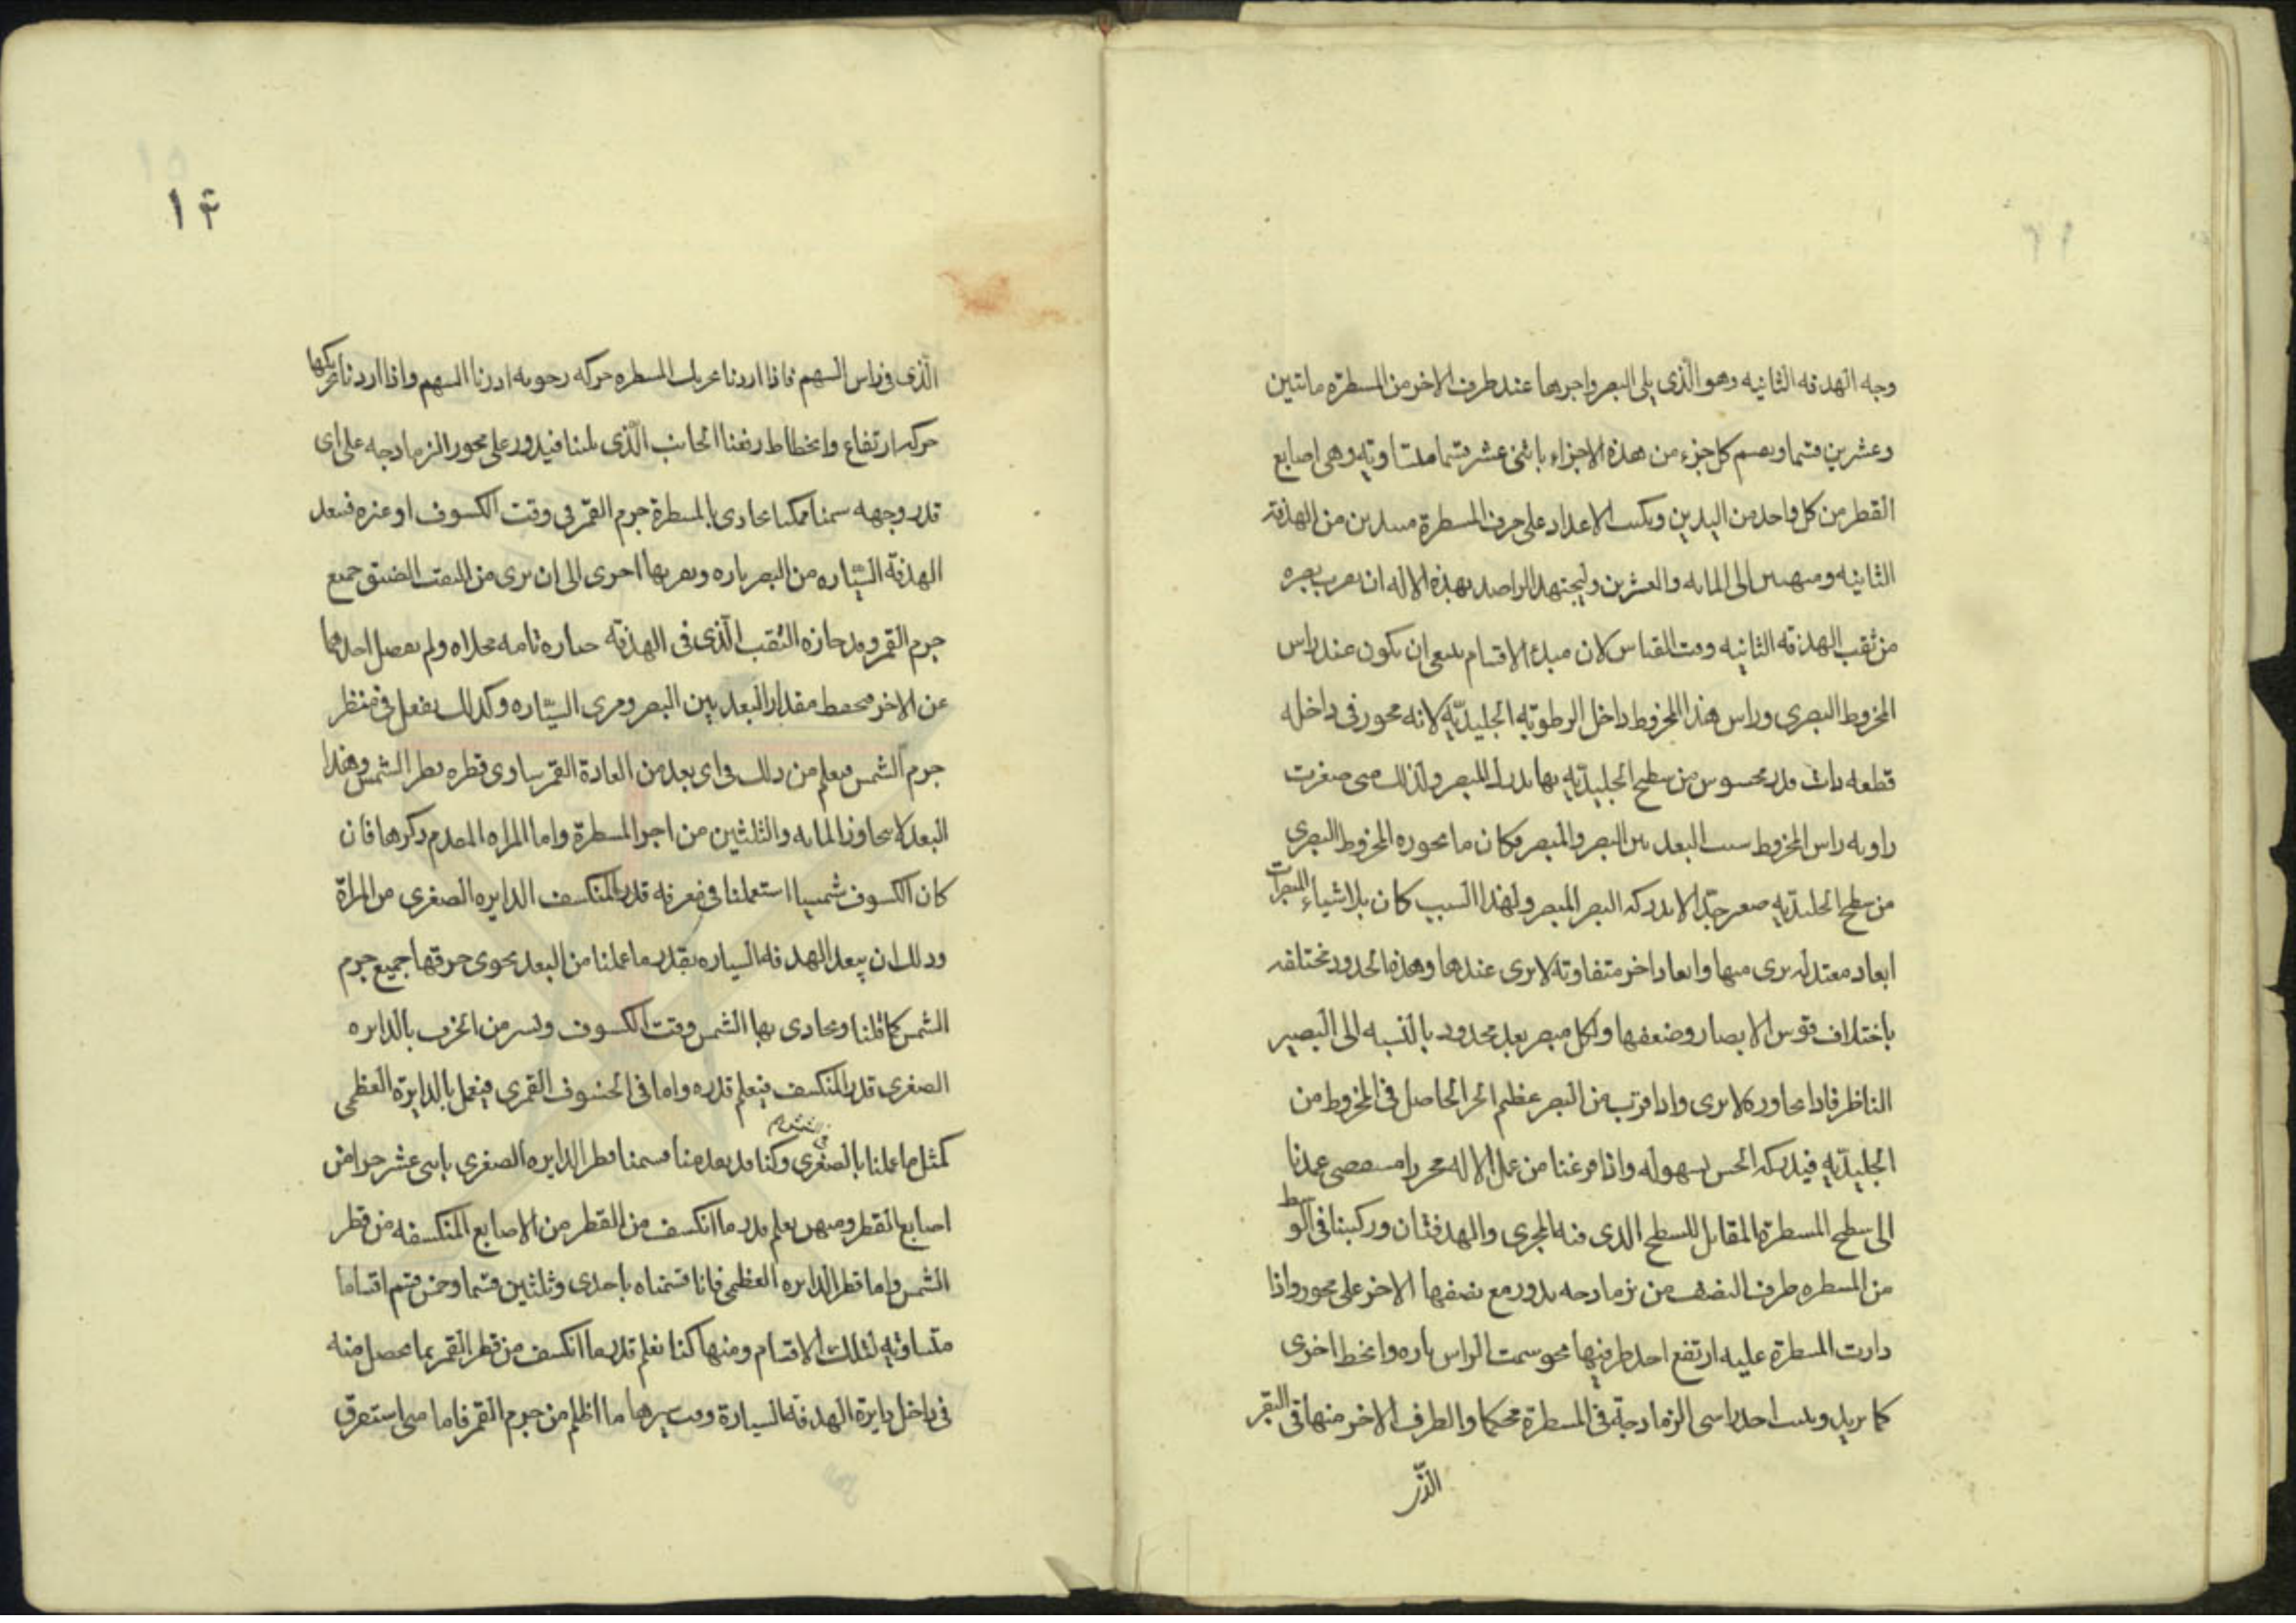 وجه الهدفه الثانيه وهو الذى يلى البصر واجرها عند طرف الاخر من المسطرة مائتين
وعشرين قسما ويقسم كل جزء من هذه الاجزاء باثنى عشر قسما متساويه وهى اصابع
القطر من كل واحد من البدين ويكتب الاعداد على حرف المسطرة مبتدين من الهدفة
الثانيه ومنتهيين الى المايه والعشرين وليجتهد الراصد بهذه الاله ان يقرب بصره
من ثقب الهدفه الثانيه وقت القياس لان مبدء الاقسام ينبغى ان يكون عند راس
المخروط البصرى وراس هذا المخروط داخل الرطوبه الجليديه لانه محوز فى داخله
قطعه ذات قدر محسوس من سطح الجليديه بها يدرك المبصر ولذلك متى صغرت
زاويه راس المخروط بسبب البعد بين البصر والمبصر وكان ما يحوزه المخروط البصرى
من سطح الجليديه صغر جدا لا يدركه البصر المبصر ولهذا السبب كان للاشياء المبصرات
ابعاد معتدله يرى منها وابعاد اخر متفاوته لا يرى عندها وهذه الحدود مختلفه
باختلاف قوس الابصار وضعفها ولكل مبصر بعد محدود بالنسبه الى البصير
الناظر فاذا تجاوزه لا يرى واذا قرب من البصر عظم الجز الحاصل فى المخروط من
الجليديه فيدركه الحس بسهوله واذا فرغنا من عمل الاله محررا مستقصى عمدنا
الى سطح المسطرة المقابل للسطح الذى فيه المجرى والهدفتان وركبنا فى الوسط
من المسطره طرف النصف من نرمادجه يدور مع نصفها الاخر على محور واذا
دارت المسطرة عليه ارتفع احد طرفيها نحو سمت الراس تاره وانحط اخرى
كما يريد ويثبت احد راسى النرمادجة فى المسطرة محكما والطرف الاخر منها فى النقر
الذى
١٤
الذى فى راس السهم فاذا اردنا تحريك المسطره حركه رحويه ادرنا السهم واذا اردنا تحريكها
حركه ارتفاع وانحطاط رفعنا الجانب الذى يلينا فيدور على محور النرمادجه على اى
قدر وجهه سمنا ممكنا يحاذى بالمسطرة جرم القمر فى وقت الكسوف او غيره فيبعد
الهدفة السياره من البصر تاره ويقربها اخرى الى ان يرى من الثقب الضيق جميع
جرم القمر وقد حازه الثقب الذى فى الهدفه حيازه تامه محلاه ولم يفصل احدهما
عن الاخر فيحفظ مقدار البعد بين البصر ومرى السياره وكذلك يفعل فى منظر
جرم الشمس فيعلم من ذلك فى اى بعد من العادة القمر يساوى قطره قطر الشمس وهذا
البعد لا يتجاوز المايه والثلثين من اجزا المسطرة واما المراه المقدم ذكرها فان
كان الكسوف شمسيا استعملنا فى معرفه قدر المنكسف الدايره الصغرى من المراة
وذلك ان يبعد الهدفه السياره بقدر ما علمنا من البعد يحوى خرقها جميع جرم
الشمس كما قلنا ويحاذى بها الشمس وقت الكسوف ونستر من الخرق بالدايره
الصغرى قدر المنكسف فيعلم قدره واما فى الخسوف القمرى فيعمل بالدايرة العظمى
كمثل ما عملنا بالصغرى وكنا قد بعد منا قسمنا قطر الدايره الصغرى باثنى عشر جزا من
اصابع القطر ومنهن يعلم قدر ما انكسف من القطر من الاصابع المنكسفه من قطر
الشمس واما قطر الدايره العظمى فانا قسمناه باحدى وثلثين قسما ونحن قسم اقساما
متساويه لتلك الاقسام ومنها كنا نعلم قدر ما انكسف من قطر القمر بما يحصل منه
فى داخل دايرة الهدفه السيارة وقت سيرها ما اظلم من جرم القمر فاما متى استغرق